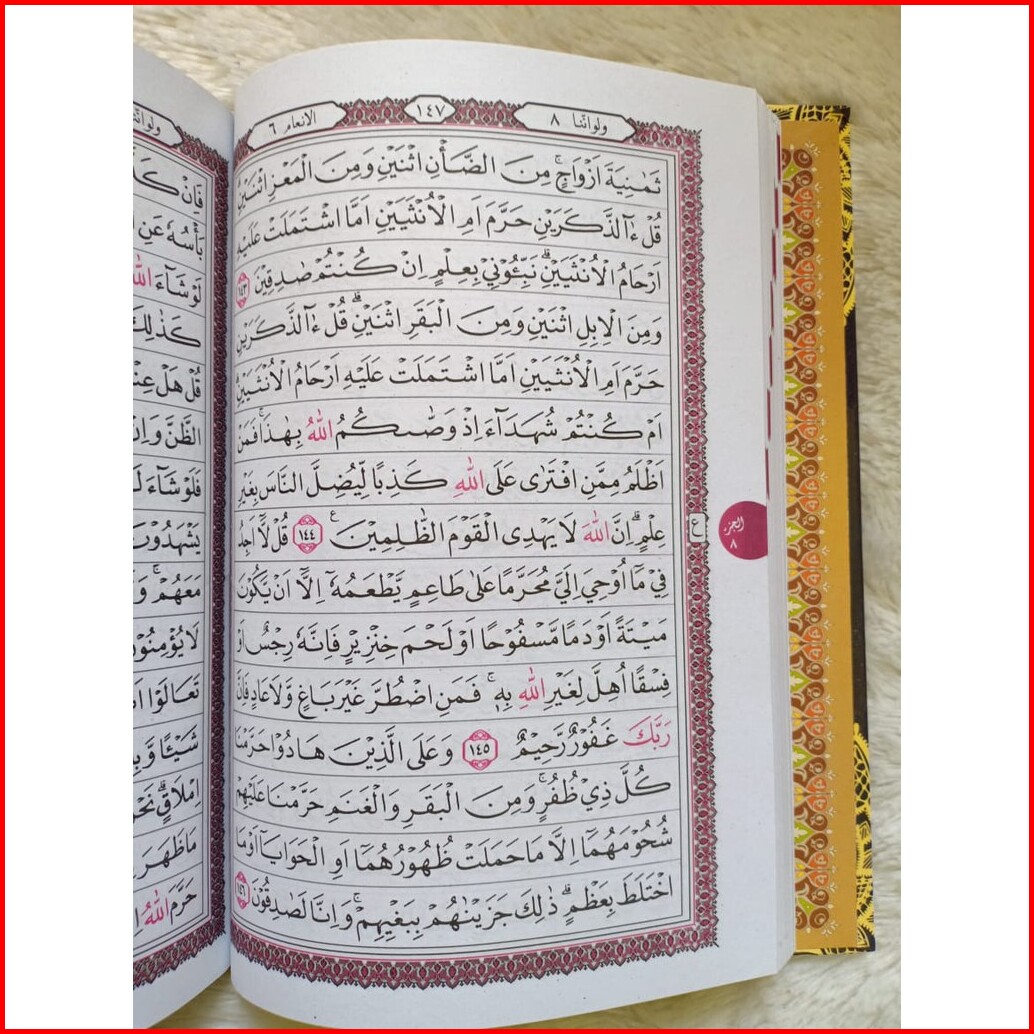 ولواننا ٨
١٤٧
الانعام ٦
ثَمٰنِيَةَ اَزْوَاجٍۚ مِنَ الضَّأْنِ اثْنَيْنِ وَمِنَ الْمَعْزِ اثْنَيْنِۗ
قُلْ ءٰۤالذَّكَرَيْنِ حَرَّمَ اَمِ الْاُنْثَيَيْنِ اَمَّا اشْتَمَلَتْ عَلَيْهِ
اَرْحَامُ الْاُنْثَيَيْنِۗ نَبِّـُٔوْنِيْ بِعِلْمٍ اِنْ كُنْتُمْ صٰدِقِيْنَ ١٤٣
وَمِنَ الْاِبِلِ اثْنَيْنِ وَمِنَ الْبَقَرِ اثْنَيْنِۗ قُلْ ءٰۤالذَّكَرَيْنِ
حَرَّمَ اَمِ الْاُنْثَيَيْنِ اَمَّا اشْتَمَلَتْ عَلَيْهِ اَرْحَامُ الْاُنْثَيَيْنِۗ
اَمْ كُنْتُمْ شُهَدَاۤءَ اِذْ وَصّٰىكُمُ اللّٰهُ بِهٰذَاۚ فَمَنْ
اَظْلَمُ مِمَّنِ افْتَرٰى عَلَى اللّٰهِ كَذِبًا لِّيُضِلَّ النَّاسَ بِغَيْرِ
عِلْمٍۗ اِنَّ اللّٰهَ لَا يَهْدِى الْقَوْمَ الظّٰلِمِيْنَ ࣖ ١٤٤ قُلْ لَّاۤ اَجِدُ
فِيْ مَاۤ اُوْحِيَ اِلَيَّ مُحَرَّمًا عَلٰى طَاعِمٍ يَّطْعَمُهٗۤ اِلَّاۤ اَنْ يَّكُوْنَ
مَيْتَةً اَوْ دَمًا مَّسْفُوْحًا اَوْ لَحْمَ خِنْزِيْرٍ فَاِنَّهٗ رِجْسٌ اَوْ
فِسْقًا اُهِلَّ لِغَيْرِ اللّٰهِ بِهٖۚ فَمَنِ اضْطُرَّ غَيْرَ بَاغٍ وَّلَا عَادٍ فَاِنَّ
رَبَّكَ غَفُوْرٌ رَّحِيْمٌ ١٤٥ وَعَلَى الَّذِيْنَ هَادُوْا حَرَّمْنَا
كُلَّ ذِيْ ظُفُرٍۚ وَمِنَ الْبَقَرِ وَالْغَنَمِ حَرَّمْنَا عَلَيْهِمْ
شُحُوْمَهُمَاۤ اِلَّا مَا حَمَلَتْ ظُهُوْرُهُمَاۤ اَوِ الْحَوَايَاۤ اَوْ مَا
اخْتَلَطَ بِعَظْمٍۗ ذٰلِكَ جَزَيْنٰهُمْ بِبَغْيِهِمْۚ وَاِنَّا لَصٰدِقُوْنَ ١٤٦
ع
الجزء
٨
فَاِنْ
بَأْسُهٗ عَنِ
لَوْ شَاۤءَ اللّٰهُ
كَذٰلِكَ
قُلْ هَلْ
الظَّنَّ وَاِنْ
فَلَوْ شَاۤءَ
يَشْهَدُوْنَ
مَعَهُمْۚ
لَا يُؤْمِنُوْنَ
تَعَالَوْا
شَيْـًٔا
اِمْلَاقٍۗ
مَا ظَهَرَ
حَرَّمَ اللّٰهُ